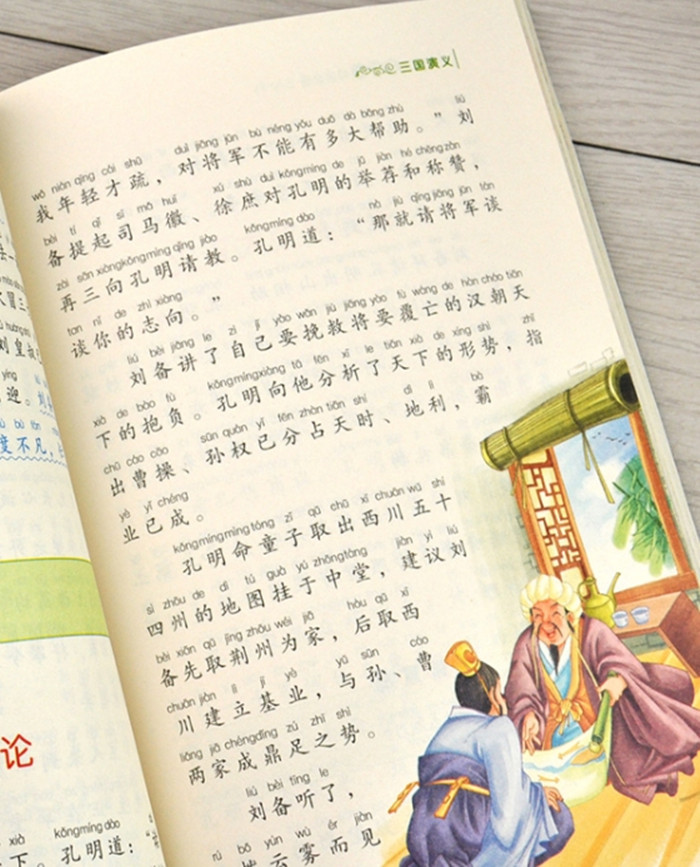 三国演义
wǒ nián qīng cái shū duì jiāng jūn bù néng yǒu duō dà bāng zhù liú
我年轻才疏，对将军不能有多大帮助。”刘
bèi tí qǐ sī mǎ huī xú shù duì kǒng míng de jǔ jiàn hé chēng zàn
备提起司马徽、徐庶对孔明的举荐和称赞，
zài sān xiàng kǒng míng qǐng jiào kǒng míng dào nà jiù qǐng jiāng jūn tán
再三向孔明请教。孔明道：“那就请将军谈
tan nǐ de zhì xiàng
谈你的志向。”
liú bèi jiǎng le zì jǐ yào wǎn jiù jiāng yào fù wáng de hàn cháo tiān
刘备讲了自己要挽救将要覆亡的汉朝天
xià de bào fù kǒng míng xiàng tā fēn xī le tiān xià de xíng shì zhǐ
下的抱负。孔明向他分析了天下的形势，指
chū cáo cāo sūn quán yǐ fēn zhàn tiān shí dì lì bà
出曹操、孙权已分占天时、地利，霸
yè yǐ chéng
业已成。
kǒng míng mìng tóng zǐ qǔ chū xī chuān wǔ shí
孔明命童子取出西川五十
sì zhōu de dì tú guà yú zhōng táng jiàn yì liú
四州的地图挂于中堂，建议刘
bèi xiān qǔ jīng zhōu wéi jiā hòu qǔ xī
备先取荆州为家，后取西
chuān jiàn lì jī yè yǔ sūn cáo
川建立基业，与孙、曹
liǎng jiā chéng dǐng zú zhī shì
两家成鼎足之势。
liú bèi tīng le
刘备听了，
rú bō yún wù ér jiàn
云雾而见
刘皇叔
迎。
度不凡，
论
xià kǒng míng dào
下。孔明道：“